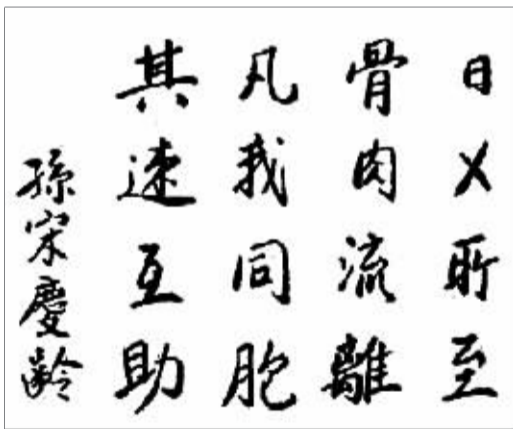 日X所至
骨肉流離
凡我同胞
其速互助
孫宋慶齡